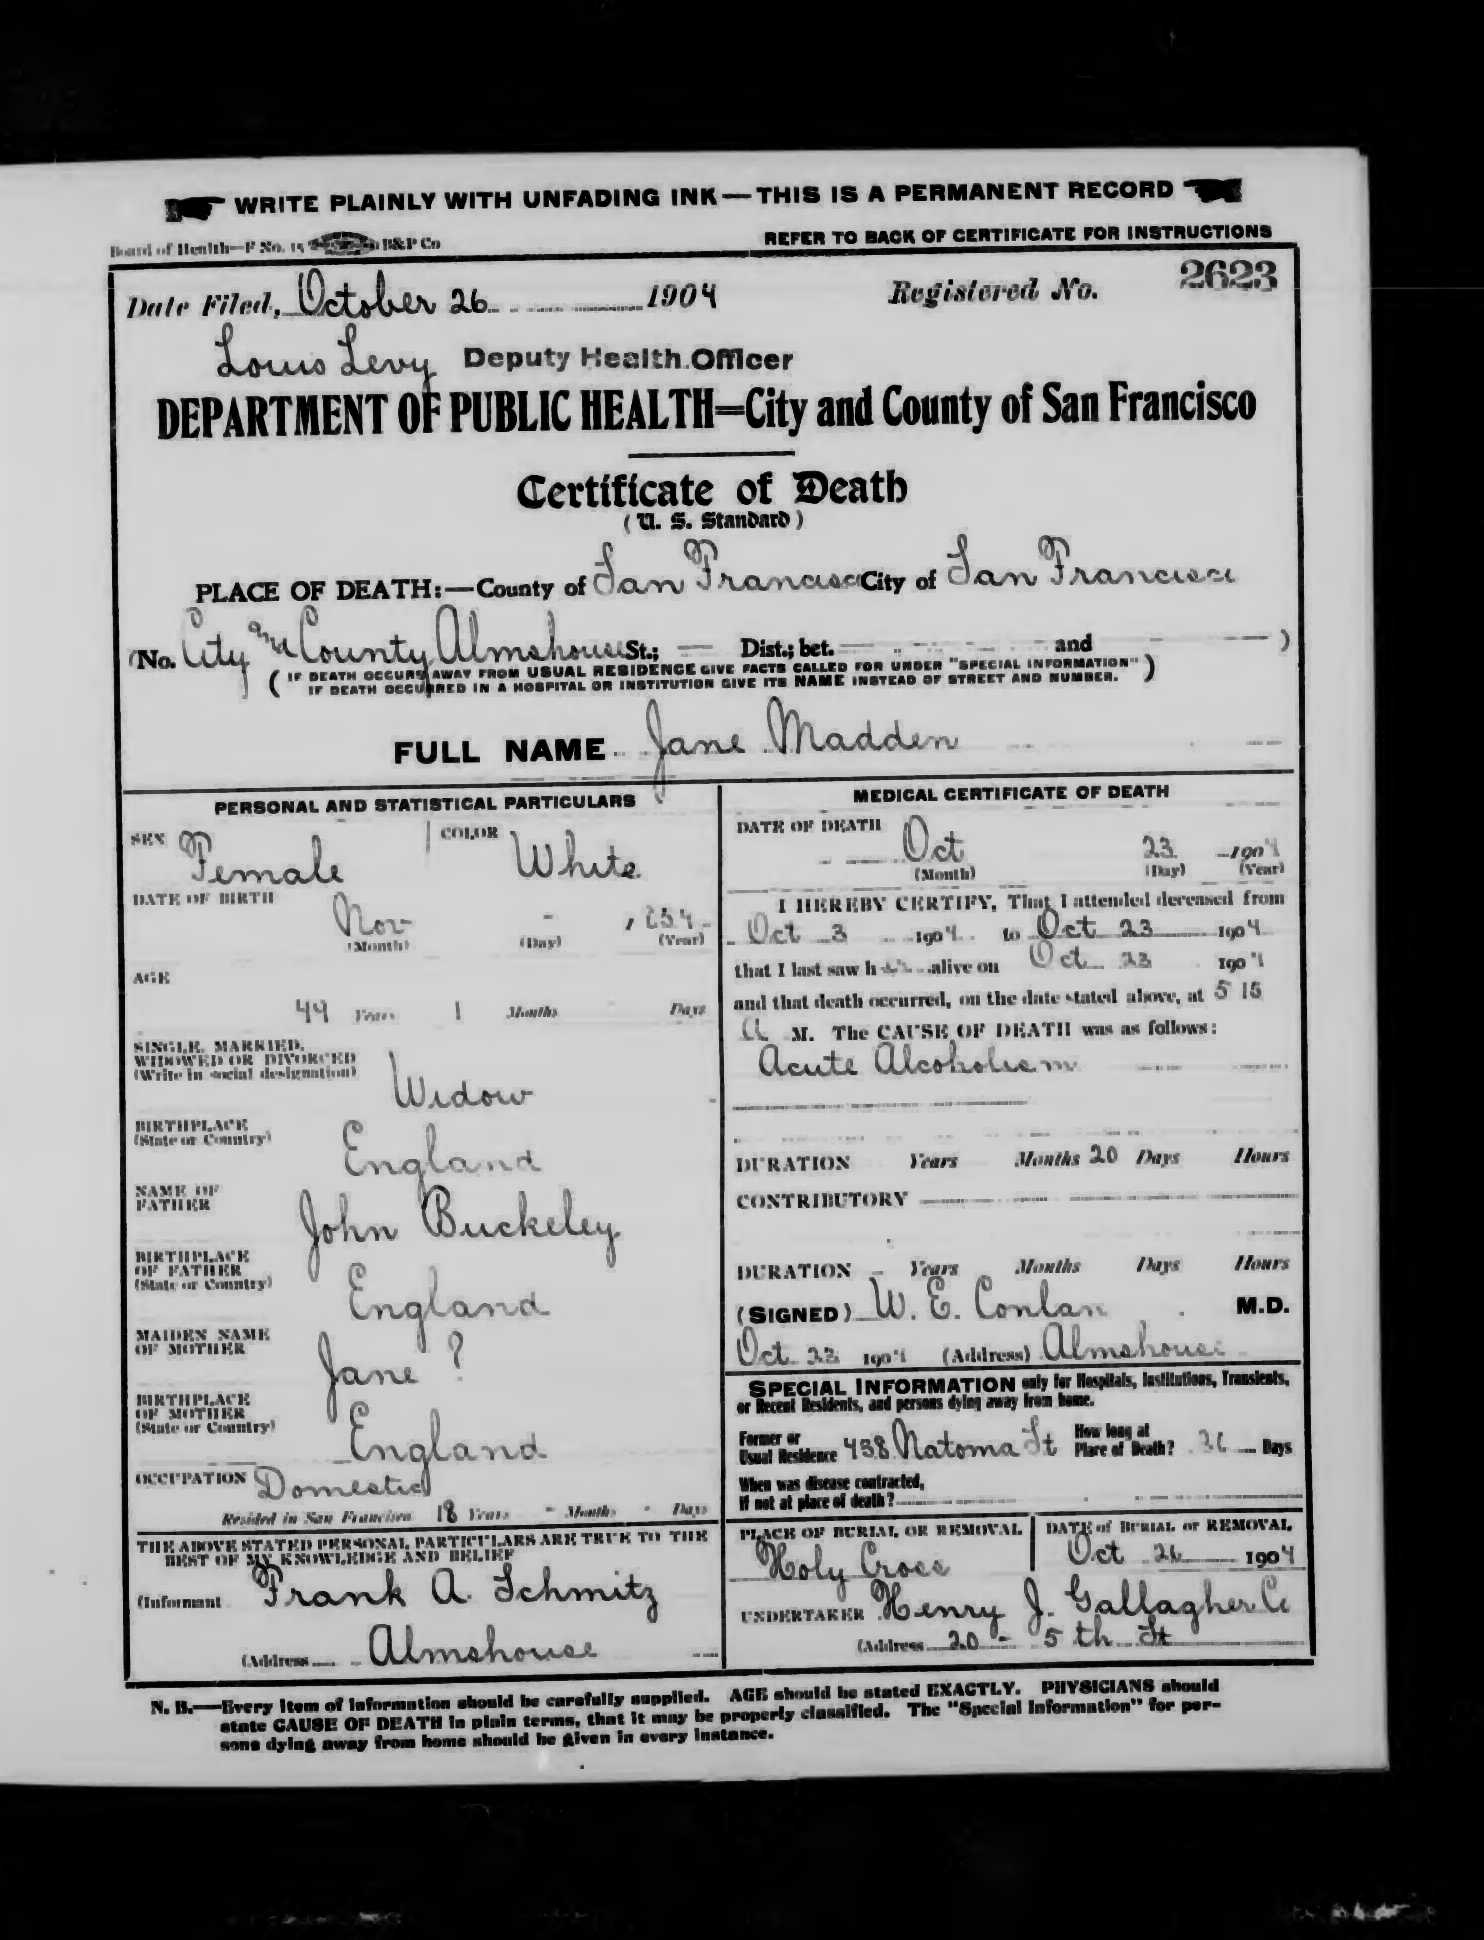 WRITE PLAINLY WITH UNFADING INK — THIS IS A PERMANENT RECORD
Board of Health—F No. 15 B&P Co
REFER TO BACK OF CERTIFICATE FOR INSTRUCTIONS
Date Filed, October 26 1904 Registered No. 2623
Louis Levy Deputy Health Officer
DEPARTMENT OF PUBLIC HEALTH=City and County of San Francisco
Certificate of Death
(U. S. Standard)
PLACE OF DEATH:—County of San Francisco City of San Francisco
(No. City and County Almshouse St.; — Dist.; bet. — and — )
( IF DEATH OCCURS AWAY FROM USUAL RESIDENCE GIVE FACTS CALLED FOR UNDER "SPECIAL INFORMATION" )
IF DEATH OCCURRED IN A HOSPITAL OR INSTITUTION GIVE ITS NAME INSTEAD OF STREET AND NUMBER.
FULL NAME Jane Madden
PERSONAL AND STATISTICAL PARTICULARS
SEX Female COLOR White
DATE OF BIRTH
Nov - , 854
(Month) (Day) (Year)
AGE
49 Years 1 Months Days
SINGLE, MARRIED,
WIDOWED OR DIVORCED
(Write in social designation)
Widow
BIRTHPLACE
(State or Country)
England
NAME OF
FATHER
John Buckeley
BIRTHPLACE
OF FATHER
(State or Country)
England
MAIDEN NAME
OF MOTHER
Jane ?
BIRTHPLACE
OF MOTHER
(State or Country)
England
OCCUPATION Domestic
Resided in San Francisco 18 Years - Months - Days
THE ABOVE STATED PERSONAL PARTICULARS ARE TRUE TO THE
BEST OF MY KNOWLEDGE AND BELIEF
(Informant Frank A. Schmitz
(Address Almshouse
MEDICAL CERTIFICATE OF DEATH
DATE OF DEATH
Oct 23 1904
(Month) (Day) (Year)
I HEREBY CERTIFY, That I attended deceased from
Oct 3 1904 to Oct 23 1904
that I last saw h alive on Oct 23 1904
and that death occurred, on the date stated above, at 5 15
A M. The CAUSE OF DEATH was as follows:
Acute Alcoholism
DURATION Years Months 20 Days Hours
CONTRIBUTORY
DURATION - Years Months Days Hours
(SIGNED) W. E. Conlan M.D.
Oct 23 1904 (Address) Almshouse
SPECIAL INFORMATION only for Hospitals, Institutions, Transients,
or Recent Residents, and persons dying away from home.
Former or
Usual Residence 438 Natoma St
How long at
Place of Death? Days
When was disease contracted,
If not at place of death?
PLACE OF BURIAL OR REMOVAL
Holy Cross
DATE of BURIAL or REMOVAL
Oct 26 1904
UNDERTAKER Henry J. Gallagher Co
(Address 20 - 5th St
N. B.—Every item of information should be carefully supplied. AGE should be stated EXACTLY. PHYSICIANS should
state CAUSE OF DEATH in plain terms, that it may be properly classified. The "Special Information" for per-
sons dying away from home should be given in every instance.